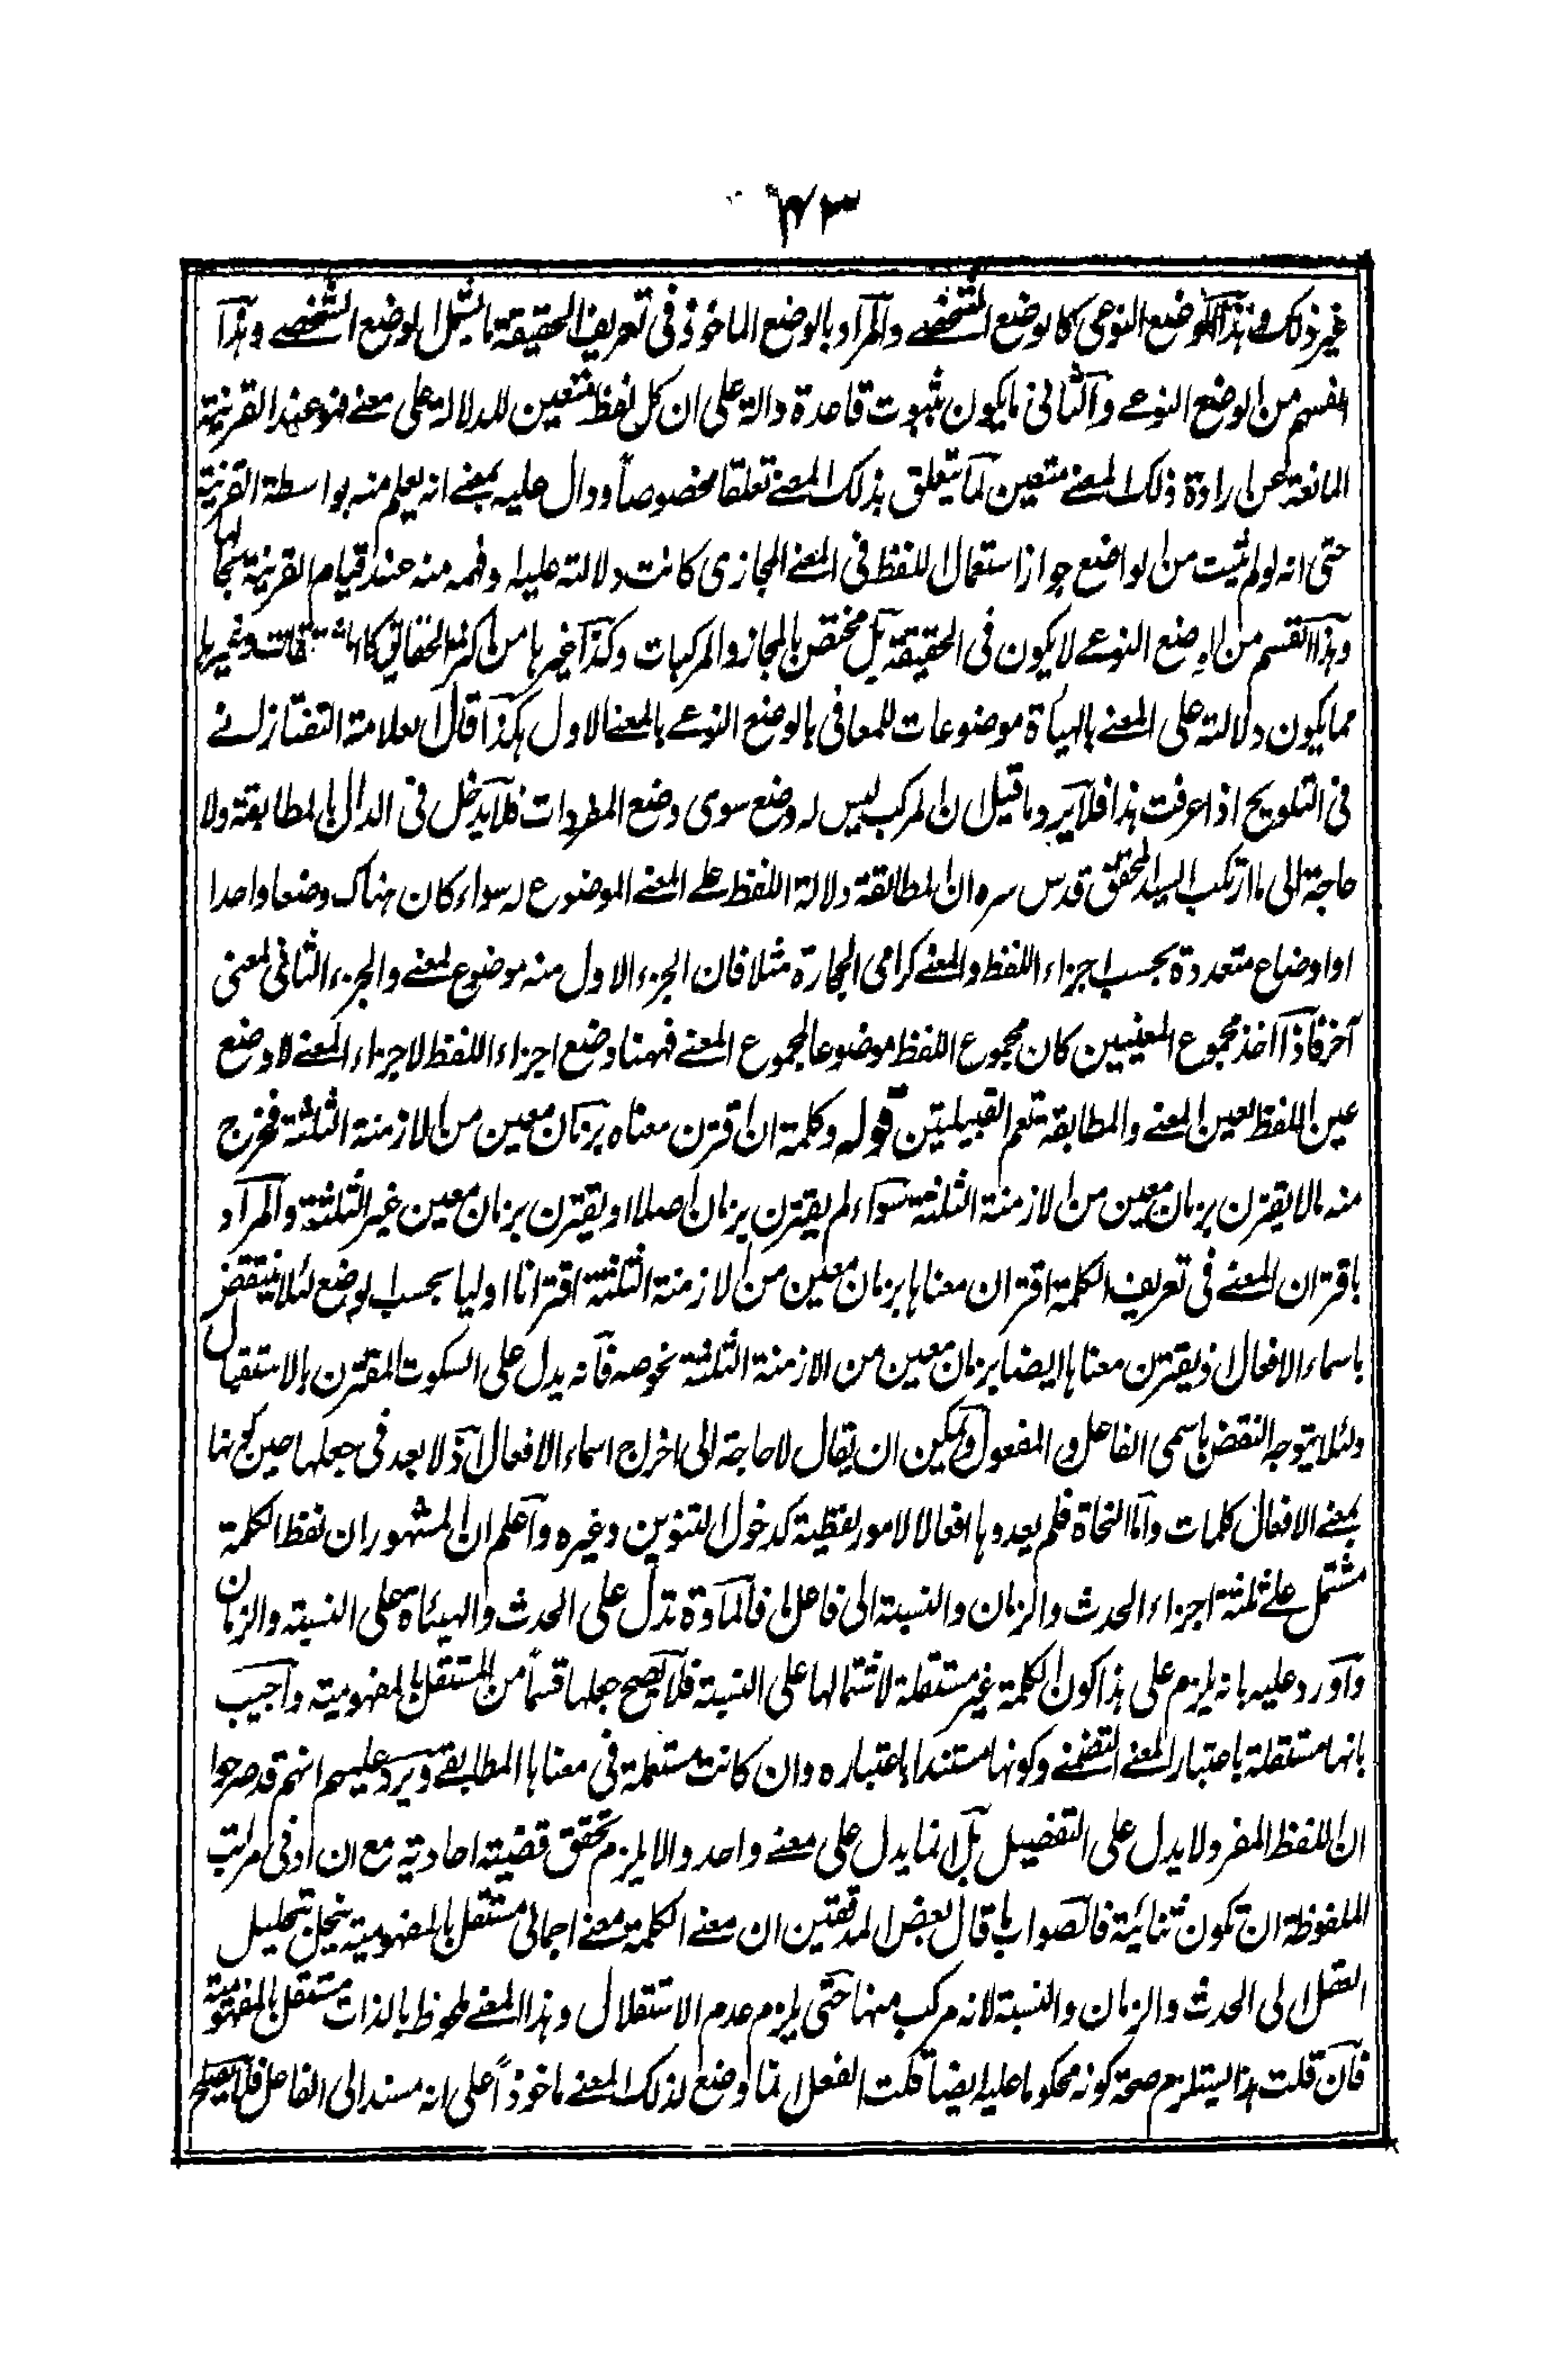 ۴۳
غير ذلك وهذا الوضع النوعى كالوضع الشخصے والمراد بالوضع الماخوذ فى تعريف الحقيقة ما يشمل الوضع الشخصے وهذا
القسم من الوضع النوعے والثانى ما يكون بثبوت قاعدة دالة على ان كل لفظ متعين للدلالة على معنے فهو عند القرينة
المانعة عن ارادة ذلك المعنے متعين لما يتعلق بذلك المعنے تعلقا مخصوصاً ودال عليه بمعنے انه يعلم منه بواسطة القرينة
حتى انه لو لم يثبت من الواضع جواز استعمال اللفظ فى المعنے المجازى كانت دلالته عليه وفهمه منه عند قيام القرينة بحالها
وهذا القسم من الوضع النوعے لا يكون فى الحقيقة بل مختص بالمجاز والمركبات وكذا غيرها من اكثر الحقائق كالمشتقات وغيرها
مما يكون دلالته على المعنے بالهيأة موضوعات للمعانى بالوضع النوعے بالمعنے الاول هكذا قال العلامة التفتازانے
فى التلويح اذا عرفت هذا فلا يرد ما قيل ان المركب ليس له وضع سوى وضع المفردات فلا يدخل فى الدال بالمطابقة ولا
حاجة الى ما ارتكب السيد المحقق قدس سره ان المطابقة دلالة اللفظ علے المعنے الموضوع له سواء كان هناك وضعا واحدا
او اوضاع متعددة بحسب اجزاء اللفظ والمعنے كرامى الحجارة مثلا فان الجزء الاول منه موضوع لمعنے والجزء الثانى لمعنى
آخر فاذا اخذ مجموع المعنيين كان مجموع اللفظ موضوعا لمجموع المعنے فههنا وضع اجزاء اللفظ لاجزاء المعنے لا وضع
عين اللفظ لعين المعنے والمطابقة تعم القبيلتين قوله وكلمة ان اقترن معناه بزمان معين من الازمنة الثلثة فخرج
منه ما لا يقترن بزمان معين من الازمنة الثلثة سواء لم يقترن بزمان اصلا او يقترن بزمان معين غير الثلثة والمراد
باقتران المعنے فى تعريف الكلمة اقتران معناها بزمان معين من الازمنة الثلثة اقترانا اوليا بحسب الوضع لئلا ينتقض
باسماء الافعال اذ يقترن معناها ايضا بزمان معين من الازمنة الثلثة نحو صه فانه يدل على السكوت المقترن بالاستقبال
ولئلا يتوجه النقض باسمى الفاعل والمفعول ويمكن ان يقال لا حاجة الى اخراج اسماء الافعال اذ لا بعد فى جعلها حين كونها
بمعنے الافعال كلمات واما النحاة فلم يعدوها افعالا لامور لفظية كدخول التنوين وغيره واعلم ان المشهور ان لفظ الكلمة
مشتمل علے ثلثة اجزاء الحدث والزمان والنسبة الى فاعل ما فالمادة تدل على الحدث والهيئاة على النسبة والزمان
واورد عليه بانه يلزم على هذا كون الكلمة غير مستقلة لاشتمالها على النسبة فلا يصح جعلها قسماً من المستقل بالمفهومية واجيب
بانها مستقلة باعتبار المعنے التضمنے وكونها مستندا باعتباره وان كانت مستعملة فى معناها المطابقے ويرد عليهم انهم قد صرحوا
ان اللفظ المفرد لا يدل على التفصيل بل انما يدل على معنے واحد والا يلزم تحقق قضية احادية مع ان ادنى مراتب
الملفوظة ان تكون ثنائية فالصواب ما قال بعض المدققين ان معنے الكلمة معنے اجمالى مستقل بالمفهومية ينحل بتحليل
العقل الى الحدث والزمان والنسبة لا انه مركب منها حتى يلزم عدم الاستقلال وهذا المعنے ملحوظ بالذات مستقل بالمفهومية
فان قلت هذا يستلزم صحة كونه محكوما عليه ايضا قلت الفعل انما وضع لذلك المعنے ماخوذاً على انه مسند الى الفاعل فلا يصلح